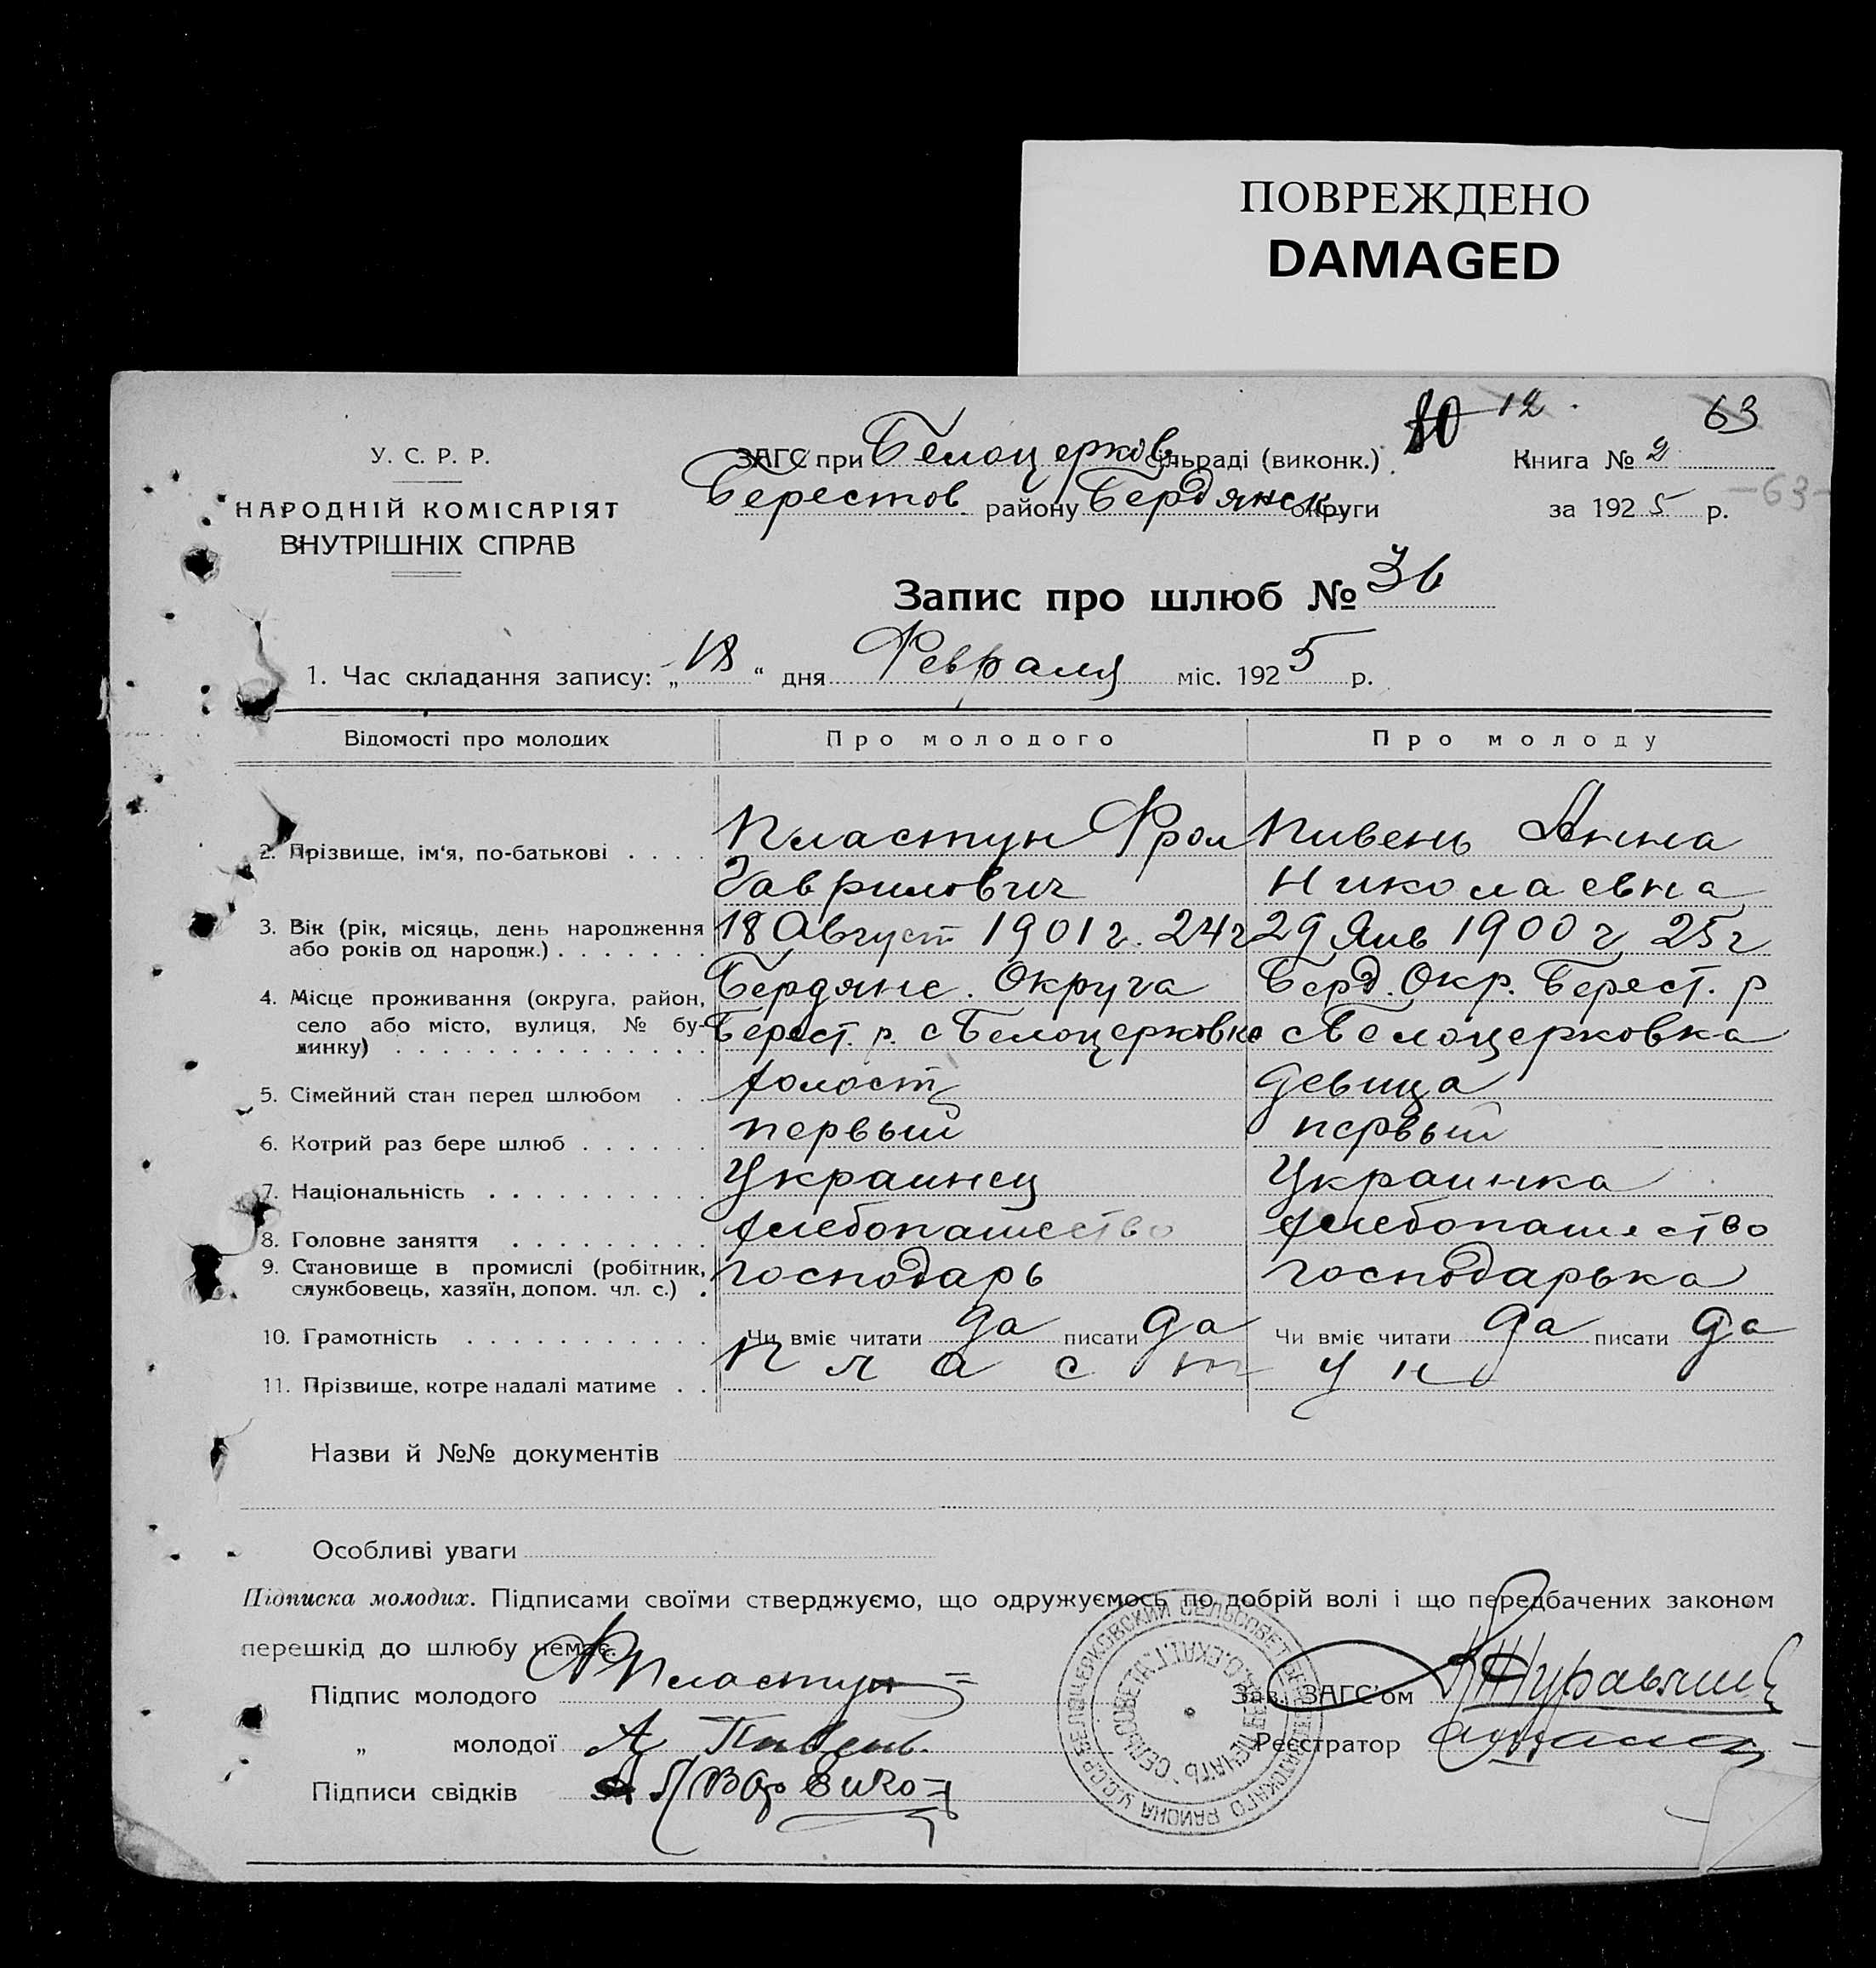 ПОВРЕЖДЕНО
DAMAGED
12. 63
У. С. Р. Р. ЗАГС при Белоцерков сільраді (виконк.) Книга № 2
НАРОДНІЙ КОМІСАРІЯТ Берестов району Бердянск округи за 1925 р. -63-
ВНУТРІШНІХ СПРАВ
Запис про шлюб № 36
1. Час складання запису: „18“ дня Февраля міс. 1925 р.
Відомості про молодих Про молодого Про молоду
2. Прізвище, ім‘я, по-батькові . . . . Пластун Фрол Пивень Анна
Гаврилович Николаевна
3. Вік (рік, місяць, день народження 18 Август 1901 г. 24 г 29 Янв 1900 г 25 г
або років од народж.) . . . . . . .
4. Місце проживання (округа, район, Бердянс. Округа Берд. Окр. Берест. р
село або місто, вулиця, № бу- Берест. р. с Белоцерковка с Белоцерковка
динку) . . . . . . . . . . . . . .
5. Сімейний стан перед шлюбом . . холост девица
6. Котрий раз бере шлюб . . . . . . первый первый
7. Національність . . . . . . . . . . Украинец Украинка
8. Головне заняття . . . . . . . . . хлебопашество хлебопашество
9. Становище в промислі (робітник, господарь господарька
службовець, хазяїн, допом. чл. с.) .
10. Грамотність . . . . . . . . . . . Чи вміє читати да писати да Чи вміє читати да писати да
11. Прізвище, котре надалі матиме . . Пластун
Назви й №№ документів
Особливі уваги
Підписка молодих. Підписами своїми стверджуємо, що одружуємось по добрій волі і що передбачених законом
перешкід до шлюбу немає.
Підпис молодого Ф Пластун Зав. ЗАГС’ом Журавлев
„ молодої А Пивень Реєстратор
Підписи свідків